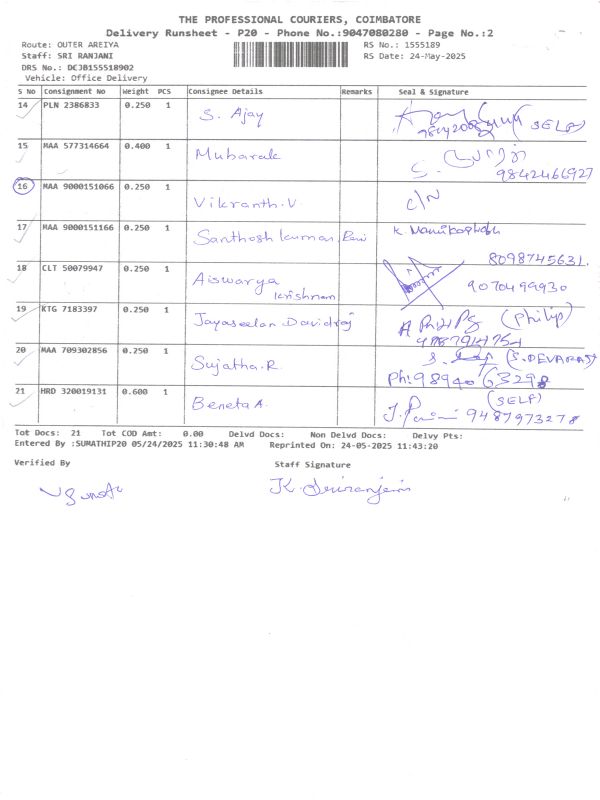 THE PROFESSIONAL COURIERS, COIMBATORE
Delivery Runsheet - P20 - Phone No.:9047080280 - Page No.:2
Route: OUTER AREIYA
RS No.: 1555189
Staff: SRI RANJANI
RS Date: 24-May-2025
DRS No.: DCJB155518902
Vehicle: Office Delivery
S No Consignment No Weight PCS Consignee Details Remarks Seal & Signature
14 PLN 2386833 0.250 1 S. Ajay (SELF)
15 MAA 577314664 0.400 1 Mubarak 9842466927
16 MAA 9000151066 0.250 1 Vikranth.V C/N
17 MAA 9000151166 0.250 1 Santhosh kumar, Ravi K
8098745631.
18 CLT 50079947 0.250 1 Aiswarya
krishnan 9070499930
19 KTG 7183397 0.250 1 Jayaseelan Davidraj (Philip)
20 MAA 709302856 0.250 1 Sujatha.R (S.DEVARAJ)
Ph:
21 HRD 320019131 0.600 1 Beneta A (SELF)
9487973278
Tot Docs: 21 Tot COD Amt: 0.00 Delvd Docs: Non Delvd Docs: Delvy Pts:
Entered By :SUMATHIP20 05/24/2025 11:30:48 AM Reprinted On: 24-05-2025 11:43:20
Verified By Staff Signature
K. Sriranjani